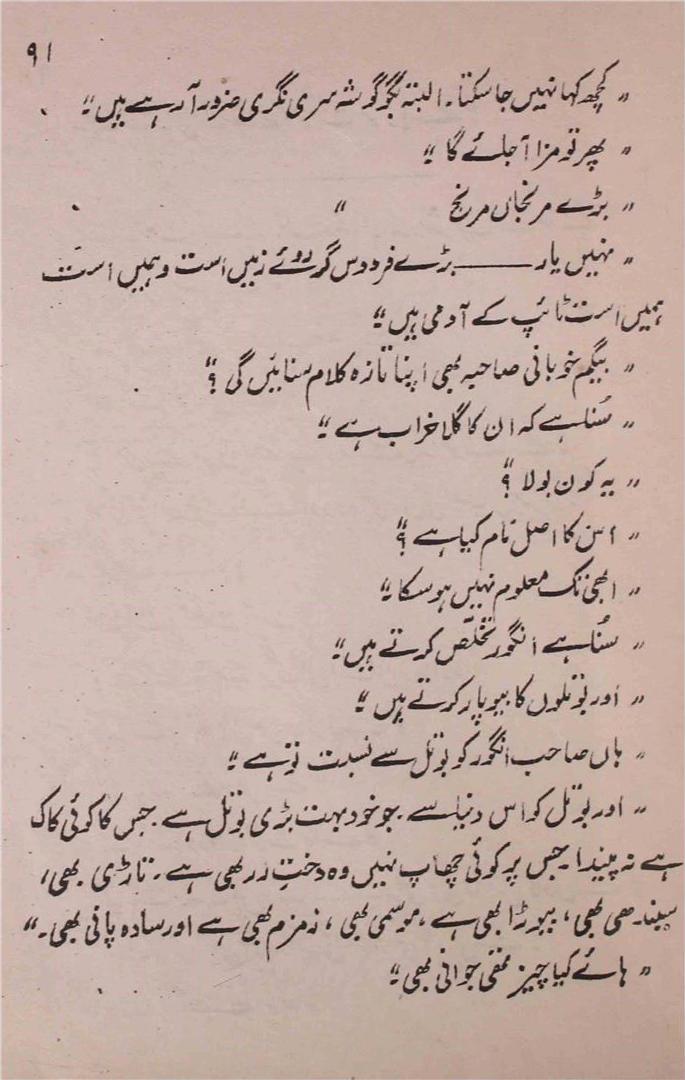 ۹۱
"کچھ کہا نہیں جا سکتا۔ البتہ بگو گوشہ سری نگری ضرور آ رہے ہیں۔"
"پھر تو مزا آ جائے گا۔"
"بڑے مرنجاں مرنج "
"نہیں یار ——— بڑے فردوس گر روئے زمیں است و ہمیں است
ہمیں است ٹائپ کے آدمی ہیں۔"
"بیگم خوبانی صاحبہ بھی اپنا تازہ کلام سنائیں گی؟"
"سُنا ہے کہ ان کا گلا خراب ہے۔"
"یہ کون بولا؟"
"اس کا اصل نام کیا ہے؟"
"ابھی تک معلوم نہیں ہو سکا۔"
"سُنا ہے انگور تخلّص کرتے ہیں۔"
"اور بوتلوں کا بیوپار کرتے ہیں۔"
"ہاں صاحب انگور کو بوتل سے نسبت تو ہے۔"
"اور بوتل کو اس دنیا سے جو خود بہت بڑی بوتل ہے جس کا کوئی کاک
ہے نہ پیندا۔ جس پر کوئی چھاپ نہیں وہ دختِ رز بھی ہے۔ تاڑی بھی،
سیندھی بھی، بیوڑا بھی ہے، موسمی بھی، زمزم بھی ہے اور سادہ پانی بھی۔"
"ہائے کیا چیز تھی جوانی بھی۔"